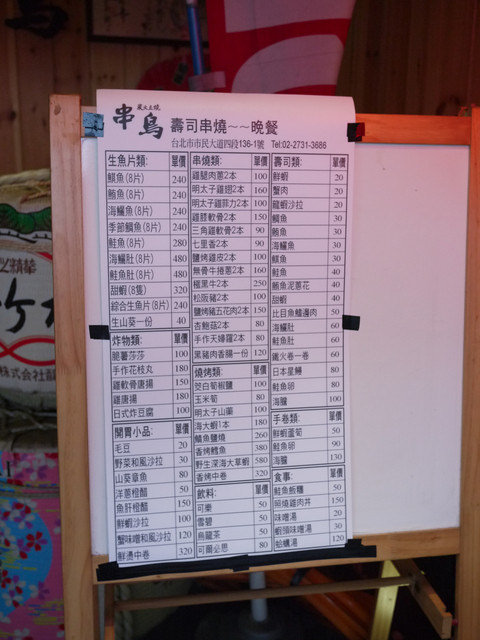 炭火土燒
串鳥 壽司串燒～～晚餐
台北市市民大道四段136-1號 Tel:02-2731-3686
生魚片類: 單價
鯕魚(8片) 240
鮪魚(8片) 240
海鱺魚(8片) 240
季節鯛魚(8片) 240
鮭魚(8片) 280
海鱺肚(8片) 480
鮭魚肚(8片) 480
甜蝦(8隻) 320
綜合生魚片(8片) 240
生山葵一份 40
炸物類: 單價
脆薯莎莎 100
手作花枝丸 180
雞軟骨唐揚 150
雞唐揚 180
日式炸豆腐 100
開胃小品: 單價
毛豆 20
野菜和風沙拉 30
山葵章魚 80
洋蔥橙醋 50
魚肝橙醋 150
鮮蝦沙拉 100
蟹味噌和風沙拉 120
鮮燙中卷 320
串燒類: 單價
雞腿肉蔥2本 100
明太子雞翅2本 160
明太子雞菲力2本 100
雞膝軟骨2本 150
三角雞軟骨2本 90
七里香2本 90
鹽烤雞皮2本 100
無骨牛捲蔥2本 160
極黑牛2本 250
松阪豬2本 100
鹽烤豬五花肉2本 150
杏鮑菇2本 80
手作天婦羅2本 80
黑豬肉香腸一份 120
燒烤類: 單價
茭白筍椒鹽 100
玉米筍 80
明太子山藥 100
海大蝦1本 180
鯖魚鹽燒 260
香烤鱈魚 380
野生深海大草蝦 580
香烤中卷 320
飲料: 單價
可樂 50
雪碧 50
烏龍茶 50
可爾必思 80
壽司類: 單價
鮮蝦 20
蟹肉 20
龍蝦沙拉 20
鯛魚 30
鮪魚 30
海鱺魚 30
鯕魚 30
鮭魚 40
鮪魚泥蔥花 40
甜蝦 40
比目魚鰭邊肉 50
海鱺肚 60
鮭魚肚 60
鐵火卷一卷 60
日本星鰻 80
鮭魚卵 80
海膽 100
手卷類: 單價
鮮蝦蘆筍 50
鮭魚卵 90
海膽 130
食事: 單價
鮭魚飯糰 50
照燒雞肉丼 150
味噌湯 20
蝦頭味噌湯 30
蛤蠣湯 50